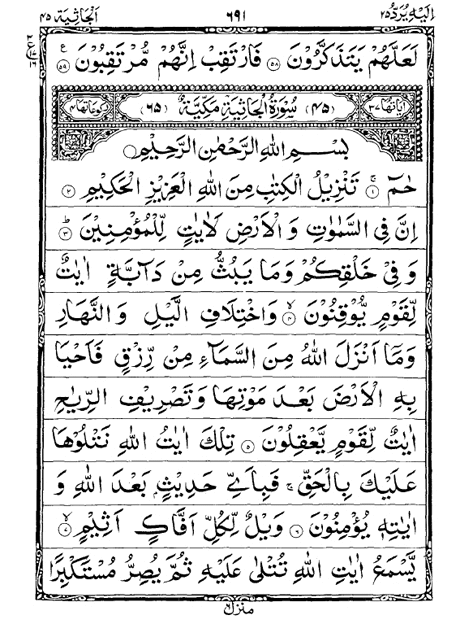 اليه يرد ٢٥ ٦٩١ الجاثية ٤٥
لَعَلَّهُمْ يَتَذَكَّرُوْنَ ۝٥٨ فَارْتَقِبْ اِنَّهُمْ مُّرْتَقِبُوْنَ ۝٥٩
اٰيَاتُهَا ٣٧ (٤٥) سُوْرَةُ الْجَاثِيَةِ مَكِّيَّةٌ (٦٥) رُكُوْعَاتُهَا ٤
بِسْمِ اللّٰهِ الرَّحْمٰنِ الرَّحِيْمِ
حٰمٓ ۝١ تَنْزِيْلُ الْكِتٰبِ مِنَ اللّٰهِ الْعَزِيْزِ الْحَكِيْمِ ۝٢
اِنَّ فِى السَّمٰوٰتِ وَ الْاَرْضِ لَاٰيٰتٍ لِّلْمُؤْمِنِيْنَ ۝٣
وَ فِىْ خَلْقِكُمْ وَمَا يَبُثُّ مِنْ دَآبَّةٍ اٰيٰتٌ
لِّقَوْمٍ يُّوْقِنُوْنَ ۝٤ وَاخْتِلَافِ الَّيْلِ وَ النَّهَارِ
وَمَاۤ اَنْزَلَ اللّٰهُ مِنَ السَّمَآءِ مِنْ رِّزْقٍ فَاَحْيَا
بِهِ الْاَرْضَ بَعْدَ مَوْتِهَا وَ تَصْرِيْفِ الرِّيٰحِ
اٰيٰتٌ لِّقَوْمٍ يَّعْقِلُوْنَ ۝٥ تِلْكَ اٰيٰتُ اللّٰهِ نَتْلُوْهَا
عَلَيْكَ بِالْحَقِّ ۚ فَبِاَىِّ حَدِيْثٍۭ بَعْدَ اللّٰهِ وَ
اٰيٰتِهٖ يُؤْمِنُوْنَ ۝٦ وَيْلٌ لِّكُلِّ اَفَّاكٍ اَثِيْمٍ ۝٧
يَّسْمَعُ اٰيٰتِ اللّٰهِ تُتْلٰى عَلَيْهِ ثُمَّ يُصِرُّ مُسْتَكْبِرًا
منزل ٦